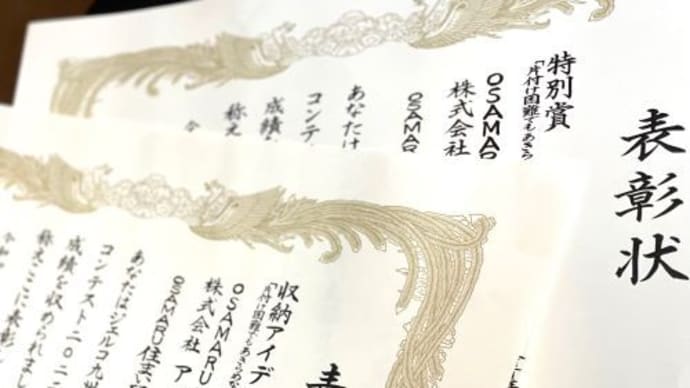 表彰状
特別賞
「片付け困難でもあきら
OSAMA
株式会社
OSAMA
あなたは
コンテ
成績を
称え
収納アイデ
「片付け困難でもあきら
OSAMARU
株式会社 ア
OSAMARU住まい
あなたはジェルコ九州
コンテスト二〇二
成績を収められまし
称えここに表彰し
令和